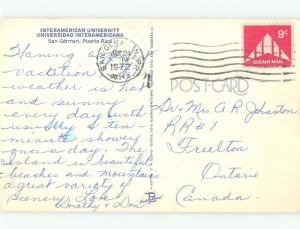 INTERAMERICAN UNIVERSITY
UNIVERSIDAD INTERAMERICANA
San Germán, Puerto Rico
Having
vacation
weather is hot
and sunny
every day with
usually a ten-
minute shower
once a day. The
island is beautiful
beaches and mountains
a great variety of
scenery. Love
Dorothy & Don
9c
U.S. AIR MAIL
POST CARD
Dr. Mrs. A R Johnston
RR#1
Freelton
Ontario
Canada.